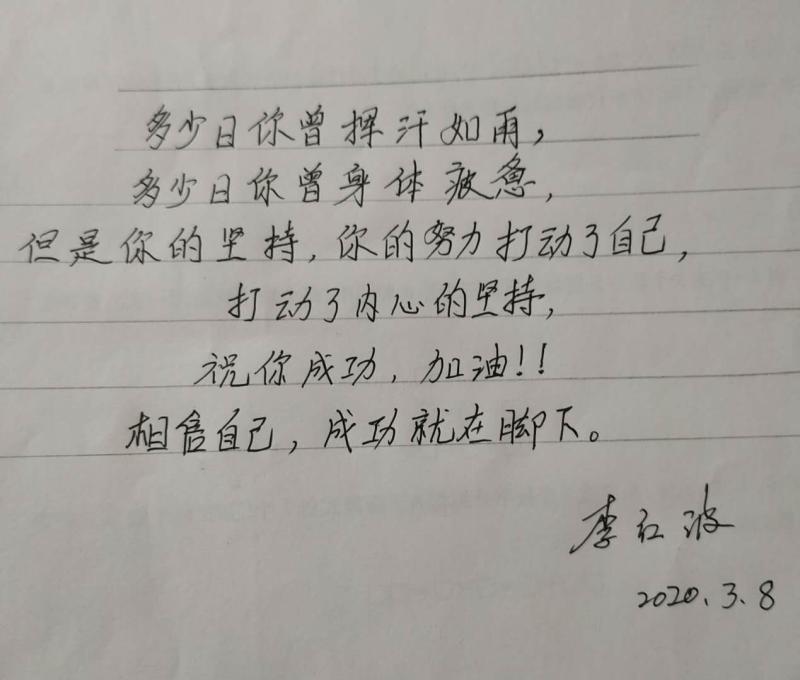 多少日你曾挥汗如雨，
多少日你曾身体疲惫，
但是你的坚持，你的努力打动了自己，
打动了内心的坚持，
祝你成功，加油！！
相信自己，成功就在脚下。
李红波
2020.3.8